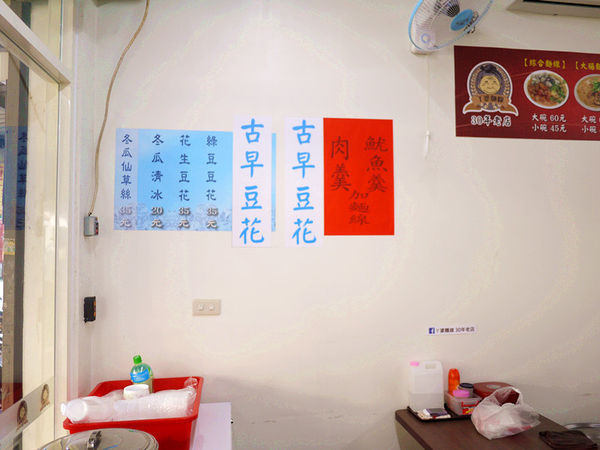 冬瓜仙草絲 35元
冬瓜清冰 20元
花生豆花 35元
綠豆豆花 35元
古早豆花
古早豆花
魷魚羹
肉羹
加麵線
【綜合麵線】
大碗 60元
小碗 45元
【大腸麵
大碗
小碗
30年老店
ㄚ婆麵線 30年老店